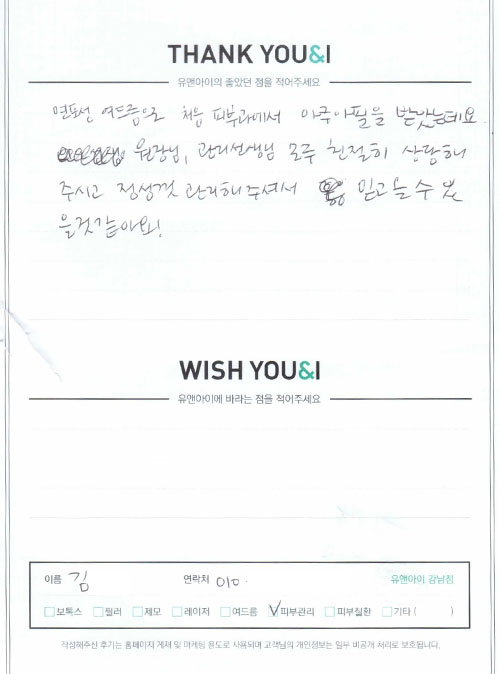 THANK YOU&I
유앤아이의 좋았던 점을 적어주세요
면포성 여드름으로 처음 피부과에서 아쿠아필을 받았는데요
원장님, 관리선생님 모두 친절히 상담해
주시고 정성껏 관리해주셔서 믿고 올 수 있
을것같아요!
WISH YOU&I
유앤아이에 바라는 점을 적어주세요
이름 김 연락처 010. 유앤아이 강남점
보톡스 필러 제모 레이저 여드름 피부관리 피부질환 기타 ( )
작성해주신 후기는 홈페이지 게재 및 마케팅 용도로 사용되며 고객님의 개인정보는 일부 비공개 처리로 보호됩니다.